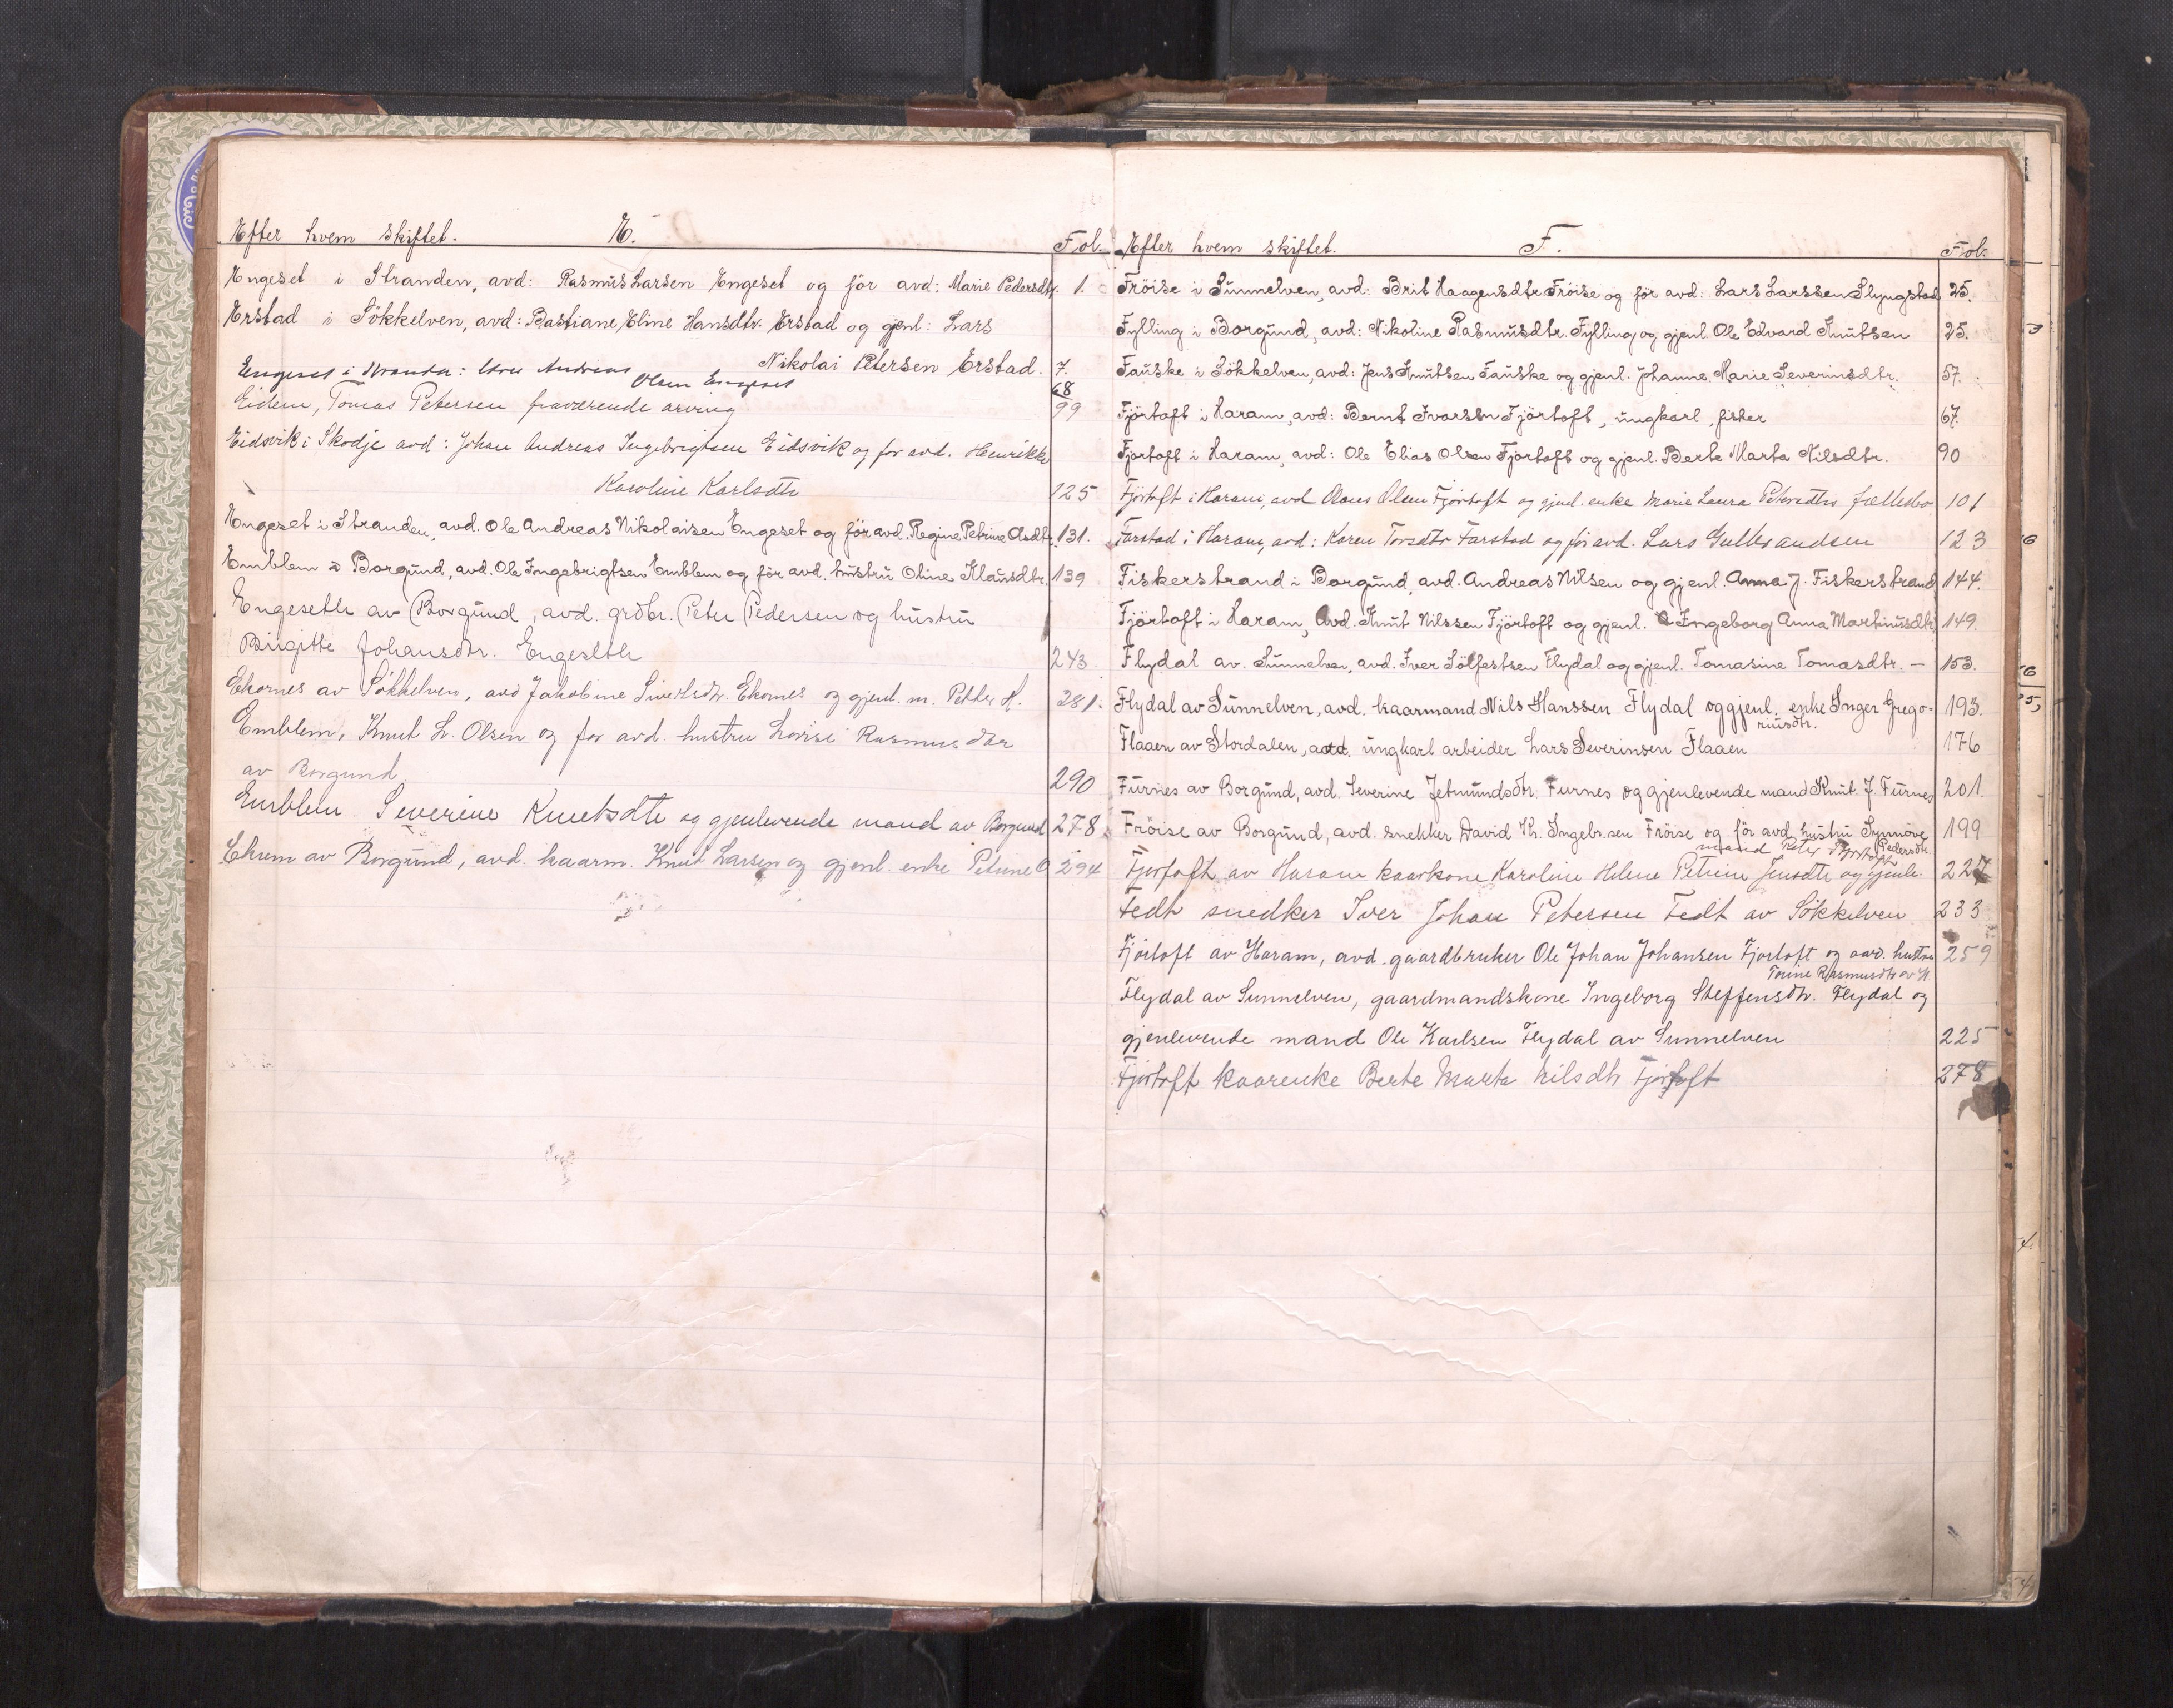 Efter hvem skiftet. E. Fol.
Engeset i Stranden, avd: Rasmus Larsen Engeset og för avd: Marie Pedersdtr. 1.
Erstad i Sökkelven, avd: Bastiane Eline Hansdtr. Erstad og gjenl: Lars
Nikolai Petersen Erstad. 7.
Engeset i Stranda: Andreas
Olsen Engeset 68
Eidem, Tomas Petersen fraværende arving 99
Eidsvik i Skodje avd: Johan Andreas Ingebrigtsen Eidsvik og for avd. Henrikke
Karoline Karlsdtr 125
Engeset i Stranden, avd. Ole Andreas Nikolaisen Engeset og för avd. Regine Petrine Olsdtr. 131.
Emblem i Borgund, avd. Ole Ingebrigtsen Emblem og för avd. hustru Oline Klausdtr. 139
Engeseth av Borgund, avd. grdbr. Peter Pedersen og hustru
Birgitte Johansdtr. Engeseth 243
Ekornes av Sökkelven, avd Jakobine Sivertsdtr. Ekornes og gjenl. m. Petter H. 281.
Emblem, Knut L. Olsen og for avd. hustru Lovise Rasmusdtr
av Borgund 290
Emblem Severine Knutsdtr og gjenlevende mand av Borgund 278
Ekrem av Borgund, avd. kaarm. Knut Larsen og gjenl. enke Petrine O 294
Efter hvem skiftet. F. Fol.
Fröise i Sunnelven, avd: Brit Haagensdtr Fröise og för avd: Lars Larssen Slyngstad 25.
Fylling i Borgund, avd: Nikoline Rasmusdtr. Fylling og gjenl. Ole Edvard Knutsen 25.
Fauske i Sökkelven, avd: Jens Knutsen Fauske og gjenl. Johanne Marie Severinsdtr. 57.
Fjörtoft i Haram, avd: Bernt Ivarssen Fjörtoft, ungkarl, fisker 67.
Fjørtoft i Haram, avd: Ole Elias Olsen Fjørtoft og gjenl. Berte Marta Nilsdtr. 90
Fjörtoft i Haram, avd Olaus Olsen Fjørtoft og gjenl. enke Marie Laura Petersdtrs fællesbo 101
Farstad i Haram, avd: Karen Toresdtr Farstad og för avd. Lars Gulbrandsen 123
Fiskerstrand i Borgund, avd. Andreas Nilsen og gjenl. Anna J. Fiskerstrand 144.
Fjörtoft i Haram, Avd. Knut Nilssen Fjörtoft og gjenl. Ingeborg Anna Martinusdtr. 149.
Flydal av Sunnelven, avd. Iver Sölfestsen Flydal og gjenl. Tomasine Tomasdtr. – 153.
Flydal av Sunnelven, avd. kaarmand Nils Hanssen Flydal og gjenl. enke Inger Grego- 193.
riusdtr.
Flaaen av Stordalen, avd. ungkarl arbeider Lars Severinsen Flaaen 176
Furnes av Borgund, avd. Severine Jetmundsdtr. Furnes og gjenlevende mand Knut J. Furnes 201.
Fröise av Borgund, avd. snekker David Kr. Ingebr.sen Fröise og för avd. hustru Synnöve 199
Pedersdtr.
mand Peter Fjørtoft
Fjørtoft av Haram kaarkone Karoline Helene Petrine Jensdtr og gjenle. 227
Fedt snedker Iver Johan Petersen Fedt av Sökkelven 233
Fjörtoft av Haram, avd. gaardbruker Ole Johan Johansen Fjørtoft og avd. hustru 259
Torine Rasmusdtr av H.
Flydal av Sunnelven, gaardmandskone Ingeborg Steffensdtr. Flydal og
gjenlevende mand Ole Karlsen Flydal av Sunnelven 225
Fjørtoft kaarenke Berte Marta Nilsdtr Fjørtoft 278